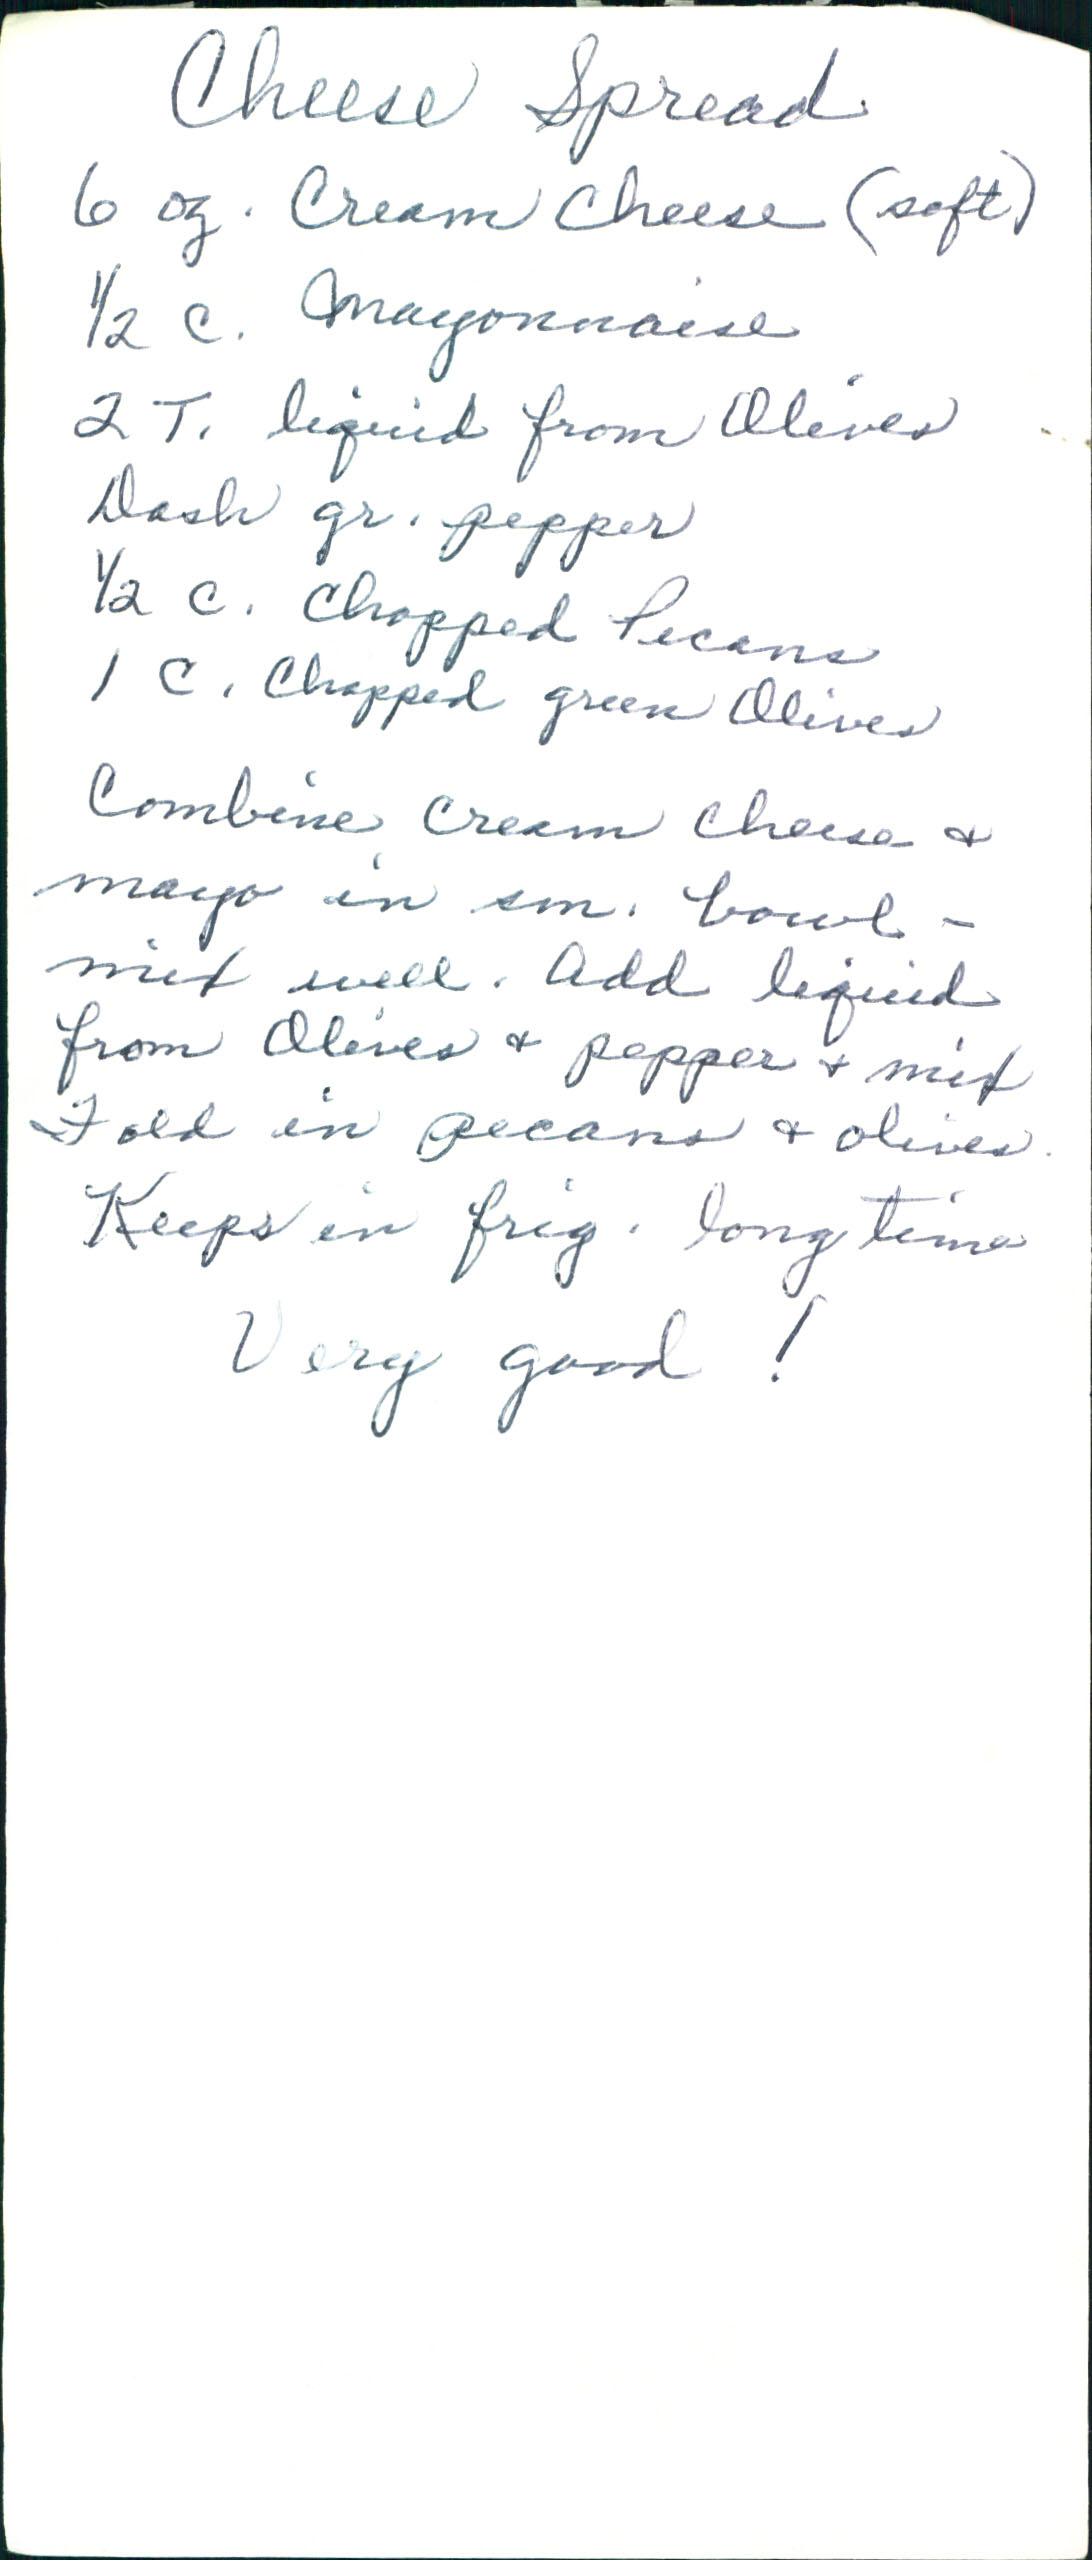 Cheese Spread
6 oz. Cream Cheese (soft)
1/2 C. Mayonnaise
2 T. liquid from Olives
Dash gr. pepper
1/2 C. Chopped Pecans
1 C. Chopped green Olives
Combine Cream Cheese &
mayo in sm. bowl -
mix well. Add liquid
from Olives & pepper & mix
Fold in pecans & olives.
Keeps in frig. long time
Very good!